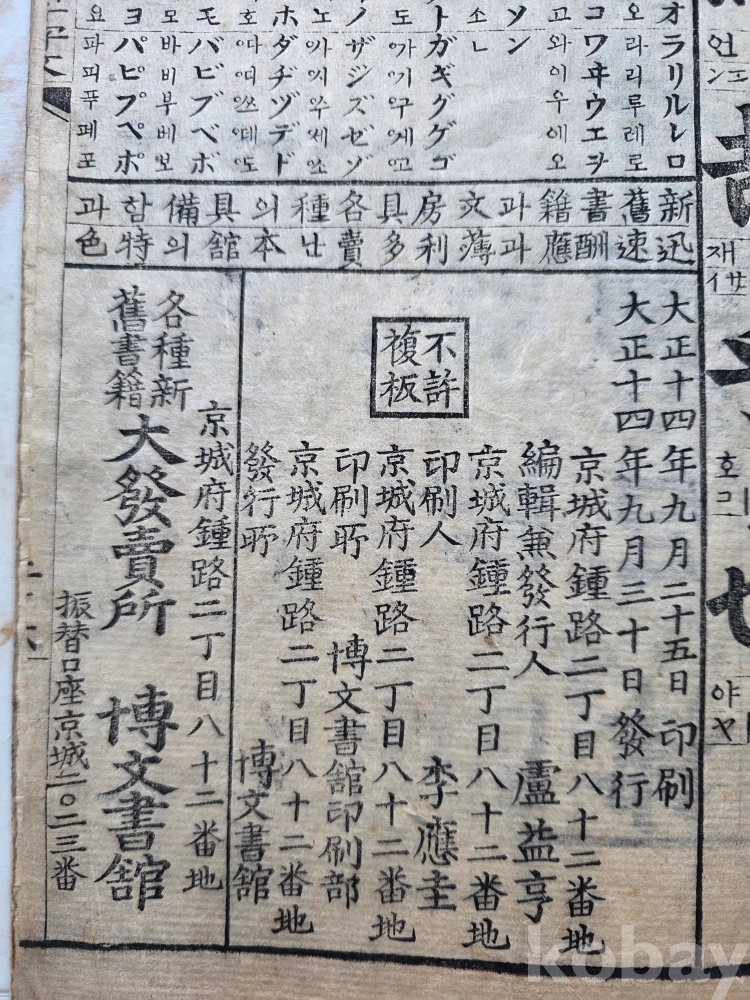 オラリルレロ
오라리루레로
コワヰウエヲ
고와이우에오
ソン
소ㄴ
トガギグゲゴ
ノザジズゼゾ
ホダヂヅデド
モバビブベボ
모바비부베보
ヨパピプペポ
요파피푸페포
新舊書籍과文房具各種의具備함과
迅速酬應과薄利多賣난本館의特色
大正十四年九月二十五日印刷
大正十四年九月三十日發行
不許
複板
京城府鍾路二丁目八十二番地
編輯兼發行人 盧益亨
京城府鍾路二丁目八十二番地
印刷人 李應圭
京城府鍾路二丁目八十二番地
印刷所 博文書舘印刷部
京城府鍾路二丁目八十二番地
發行所 博文書舘
京城府鍾路二丁目八十二番地
各種新
舊書籍
大發賣所 博文書舘
振替口座京城二〇二三番
kobay